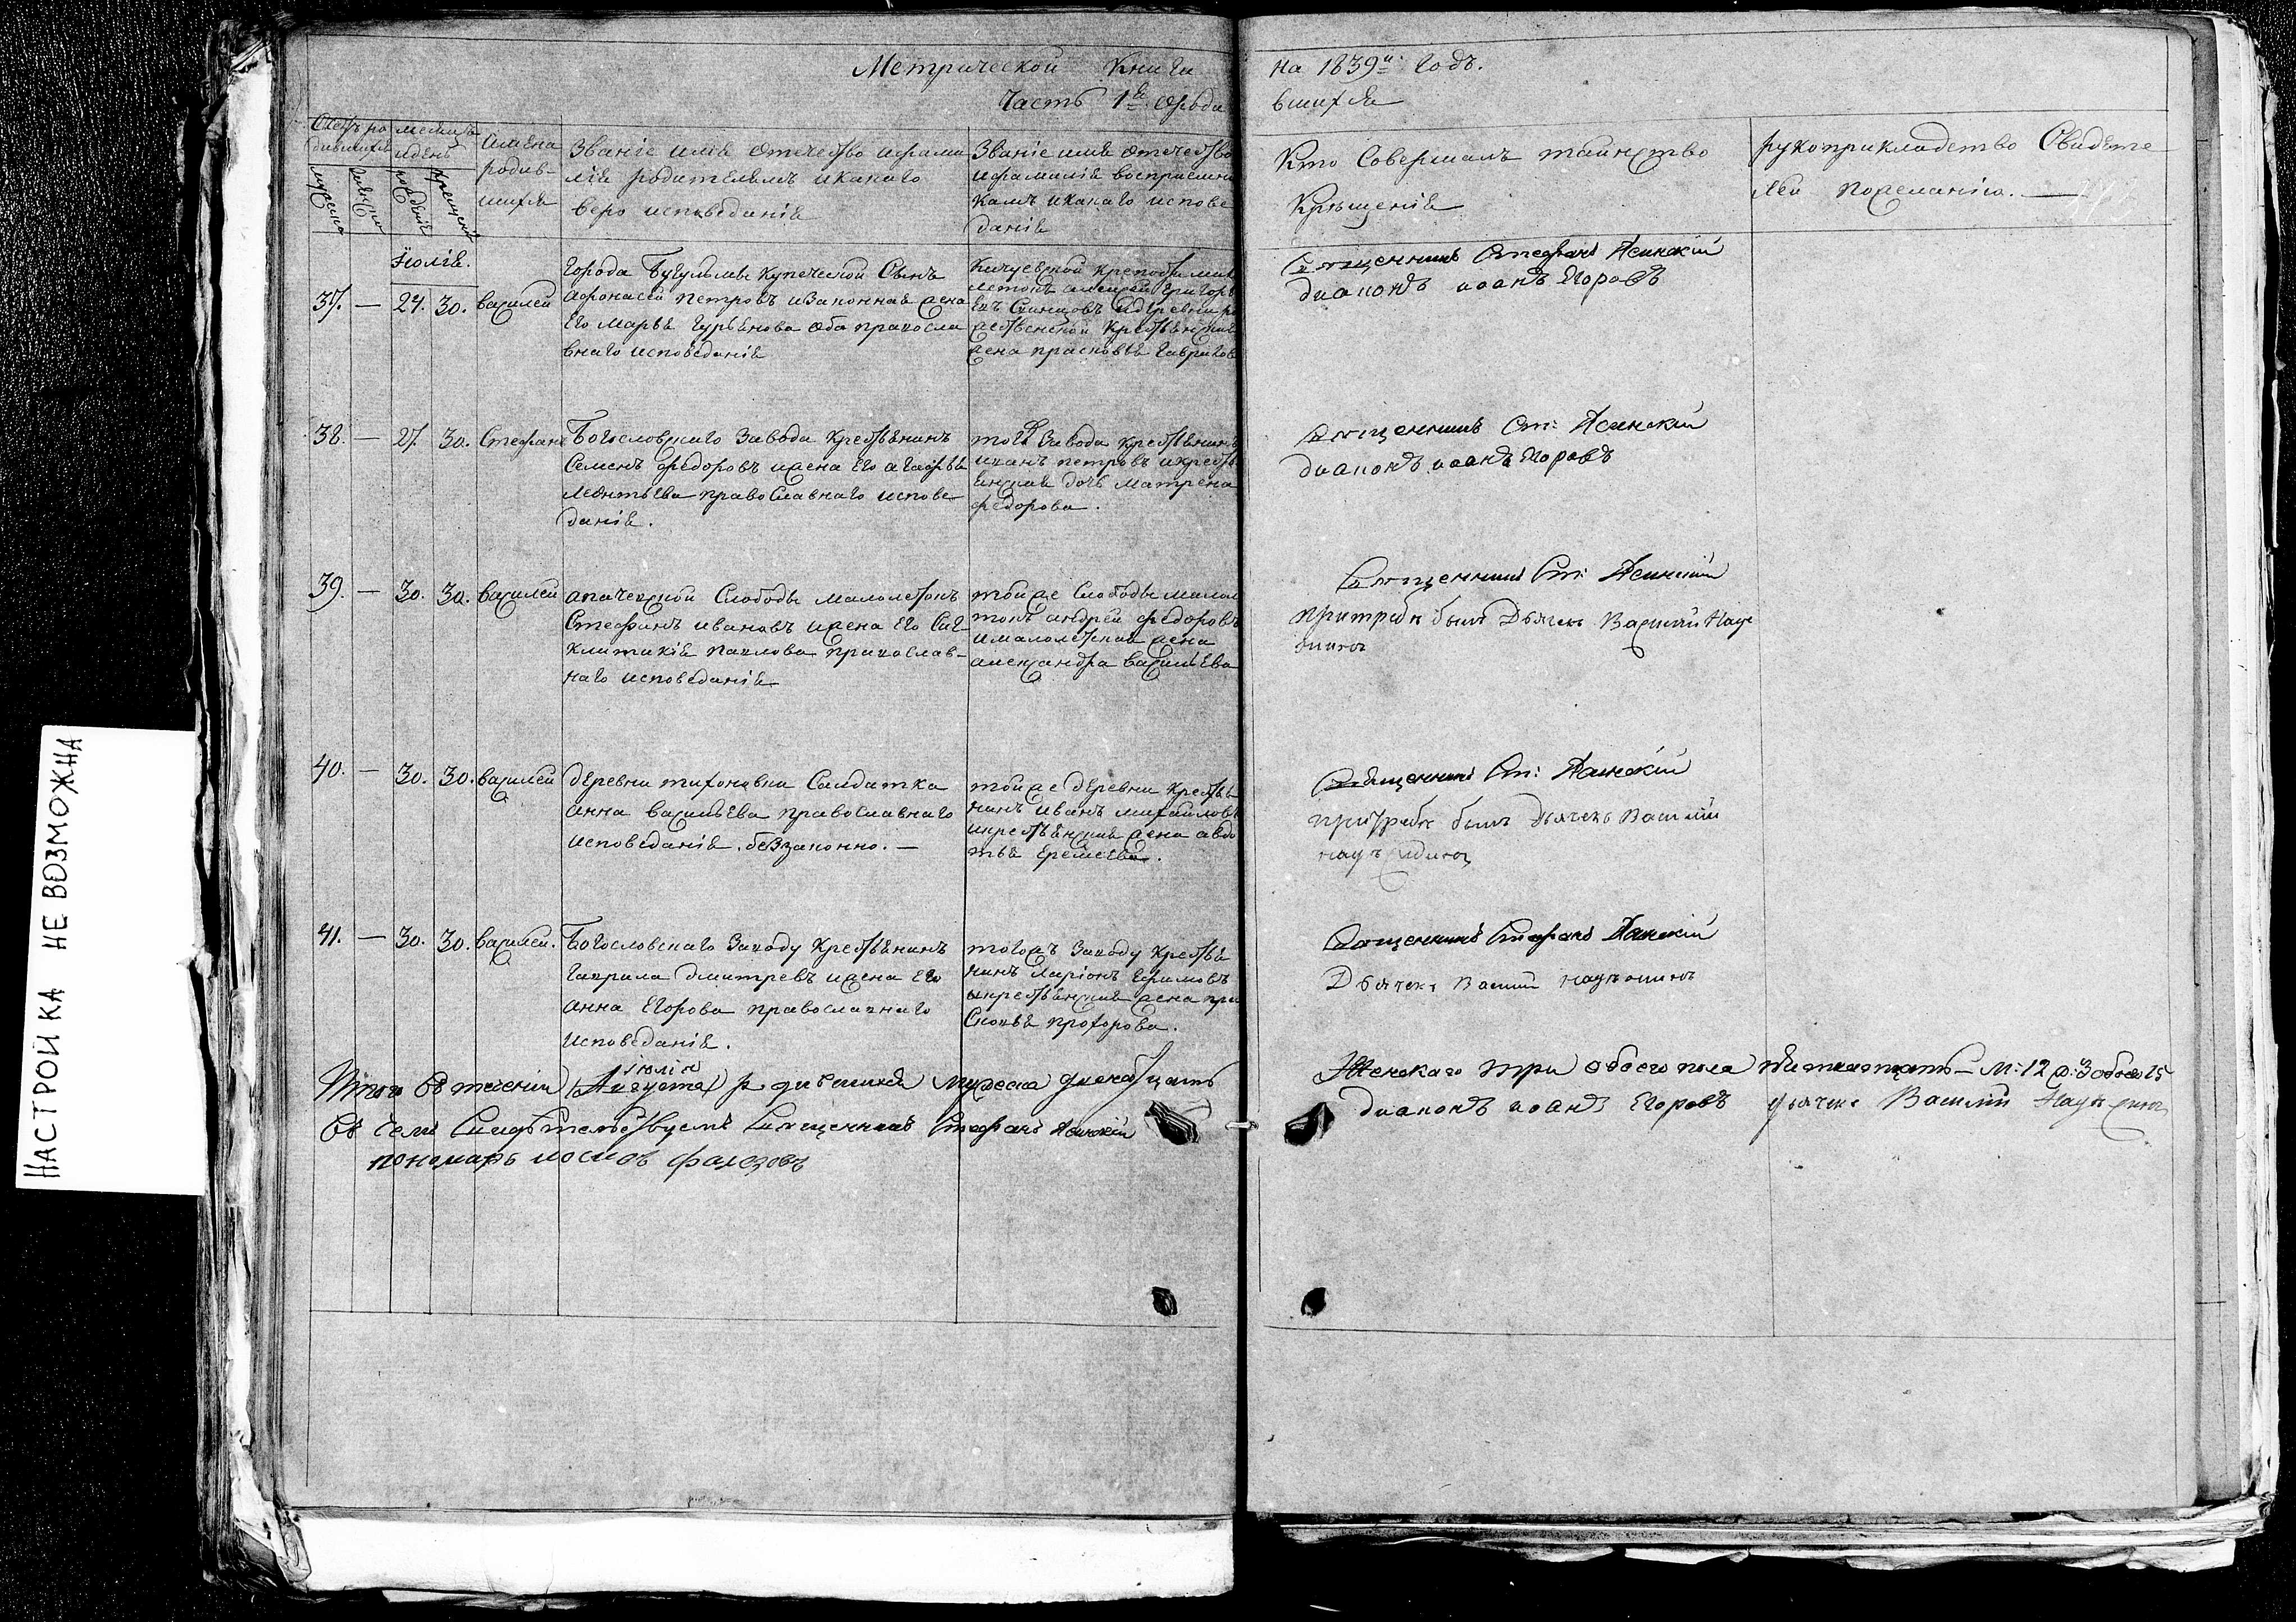 Метрической Книги
Часть 1я. О роди
на 1839й. Годъ.
вшихся
Счетъ ро
дившихся
мужеска
женска
месяцъ
и день
рождения
крещения
имена
родив-
шихся
Званіе имя отечество и фами
лія родителямъ и какого
веро исповеданія
Званіе имя отечество
и фамилія воспріемни
камъ и какого испове
данія
Кто Совершалъ таинство
Крещенія
рукоприкладство Свидете
лей по желанію. —
Июля.
37. — 27. 30. василей
Города Бугульмы купеческой Сынъ
афонасей петровъ и Законная жена
Его Марья Гурьянова оба правосла
внаго исповеданія
Кичуевской крепости мало
летокъ алексей Григорь
евъ и деревни ро
жественской крестьянская
жена прасковья Гаврилов
Священникъ Стефанъ Ясинскій
диаконъ иоанъ Егоровъ
38. — 27. 30. Стефанъ
Богословскаго Завода крестьянинъ
Семенъ федоровъ и жена Его агафья
леонтьева православнаго испове
данія.
того Завода крестьянинъ
иванъ петровъ и кресть
янская дочь матрена
федорова.
Священникъ Ст: Ясинскій
диаконъ иоанъ Егоровъ
39. — 30. 30. василей
апачевской Слободы малолетокъ
Стефанъ ивановъ и жена Его Син-
клитикія павлова православ-
наго исповеданія
той же Слободы малол
токъ андрей федоровъ
и малолетская жена
александра васильева
Священникъ Ст: Ясинскій
при требе былъ Дьячекъ Василий
40. — 30. 30. василей
деревни тихоновки Салдатка
анна васильева православнаго
исповеданія. беззаконно. —
той же деревни крестья
нинъ иванъ михайловъ
и крестьянская жена авдо
тья Еремеева.
Священникъ Ст: Ясинскій
при требе былъ дьячекъ Василий
41. — 30. 30. василей.
Богословскаго Заводу крестьянинъ
Гаврила дмитревъ и жена Его
анна Егорова православнаго
исповеданія.
тогожъ Заводу крестья
нинъ ларіонъ Ефимовъ
и крестьянская жена пра
сковья прохорова.
Священникъ Стефанъ Ясинскій
Дьячекъ Василий
іюля
Итого въ теченіи (Августа) родившихся мужеска двенатцать
Женскаго три обоего пола пятнатцать — М: 12 ж: 3 обоего 15
въ чемъ Свидетельствуемъ Священникъ Стефанъ Ясинскій
диаконъ иоанъ Егоровъ дьячекъ Василий
пономарь иосифъ
НАСТРОЙКА НЕ ВОЗМОЖНА